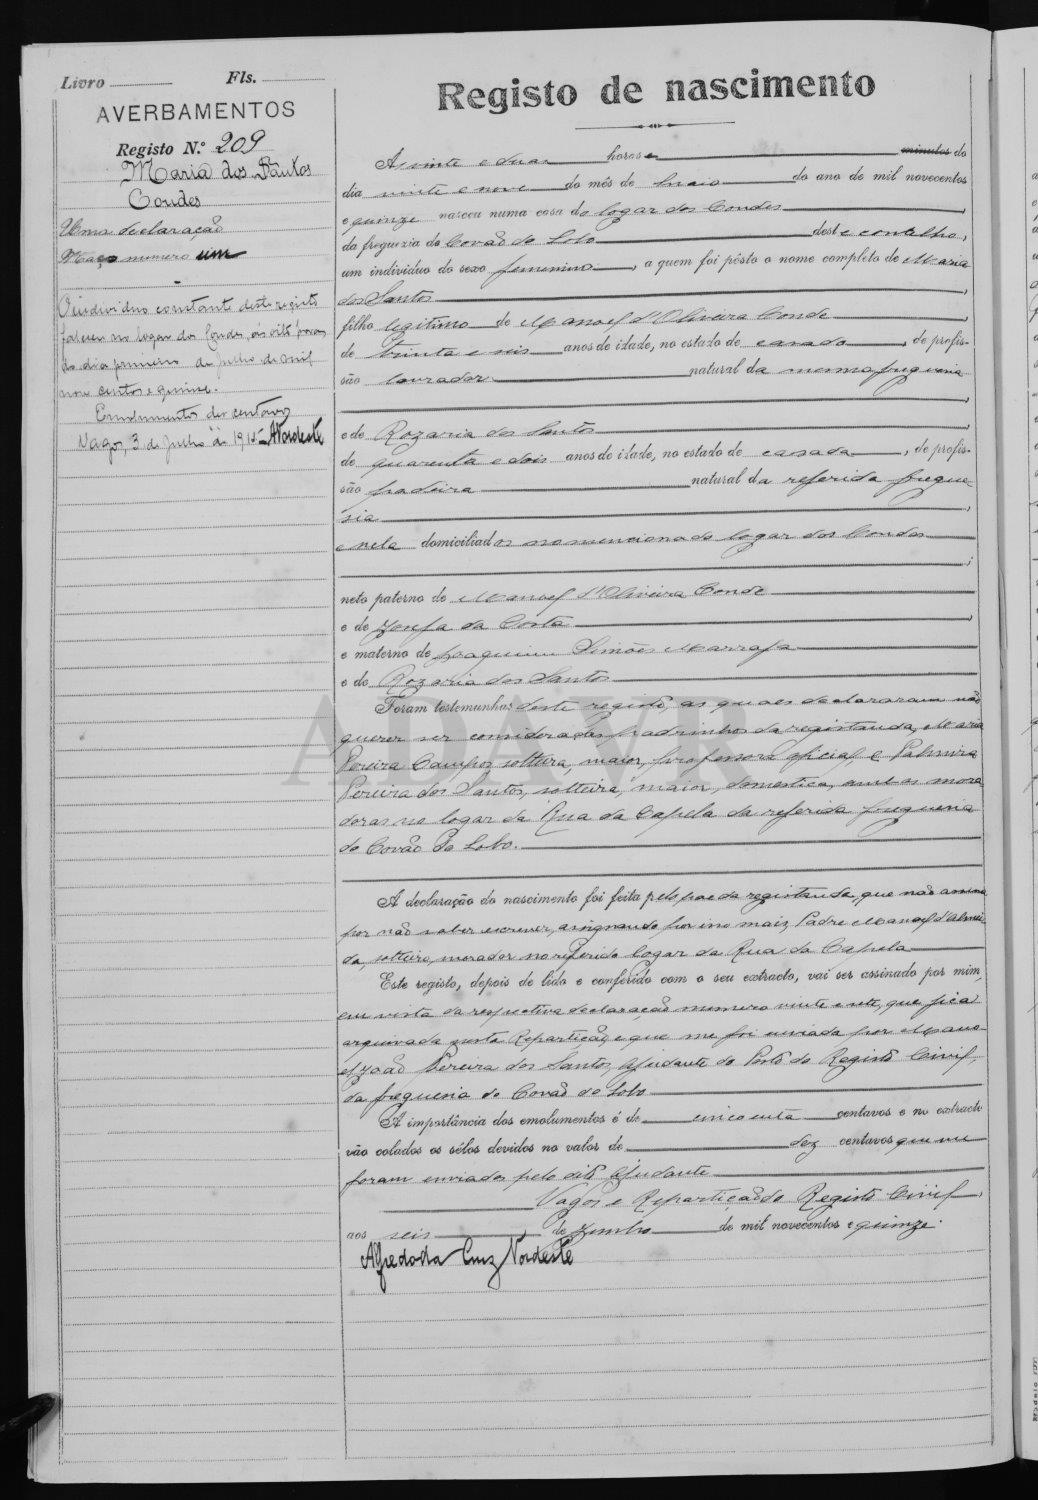 Livro Fls.
AVERBAMENTOS
Registo N.º 209
Maria dos Santos
Condes
Uma declaração
Maço numero um
O individuo constante deste registo
faleceu no logar dos Condes, ás oito horas
do dia primeiro de julho de mil
nove centos e quinze.
Emolumentos dez centavos
Vagos, 3 de Julho de 1915 ANordeste
Registo de nascimento
A's vinte e duas horas e minutos do
dia vinte e nove do mês de maio do ano de mil novecentos
e quinze nasceu numa casa do logar dos Condes,
da freguezia do Covão do Lobo deste concelho,
um individuo do sexo femenino, a quem foi pôsto o nome completo de Maria
dos Santos,
filho legitimo de Manoel d'Oliveira Conde
de trinta e seis anos de idade, no estado de casado, de profis-
são lavrador natural da mesma freguesia,
e de Rozaria dos Santos,
de quarenta e dois anos de idade, no estado de casada, de profis-
são padeira natural da referida fregue-
sia,
e nela domiciliados no mencionado logar dos Condes;
neto paterno de Manoel d'Oliveira Conde
e de Zozefa da Costa,
e materno de Joaquim Simões Marrafa
e de Rozaria dos Santos
Foram testemunhas deste registo, as quaes declararam não
querer ser consideradas padrinhos da registanda, Maria
Pereira Campos solteira, maior, professora oficial, e Palmira
Pereira dos Santos, solteira, maior, domestica, ambas mora-
doras no logar da Rua da Capela da referida freguesia
do Covão do Lobo.
A declaração do nascimento foi feita pelo pae da registanda, que não assina
por não saber escrever, assignando por ino mais, Padre Manoel d'Almei-
da, solteiro, morador no referido logar da Rua da Capela
Este registo, depois de lido e conferido com o seu extracto, vai ser assinado por mim,
em vista da respectiva declaração numero vinte e sete, que fica
arquivada nesta Repartição, e que me foi enviada por Mano-
el João Pereira dos Santos, Ajudante do Posto do Registo Civil,
da freguesia do Covão do Lobo
A importância dos emolumentos é de cincoenta centavos e no extracto
vão colados os sêlos devidos no valor de dez centavos que me
foram enviados pelo dito Ajudante
Vagos e Repartição do Registo Civil,
aos seis de Junho de mil novecentos e quinze.
Alfredo da Cruz Nordeste
ADAVR